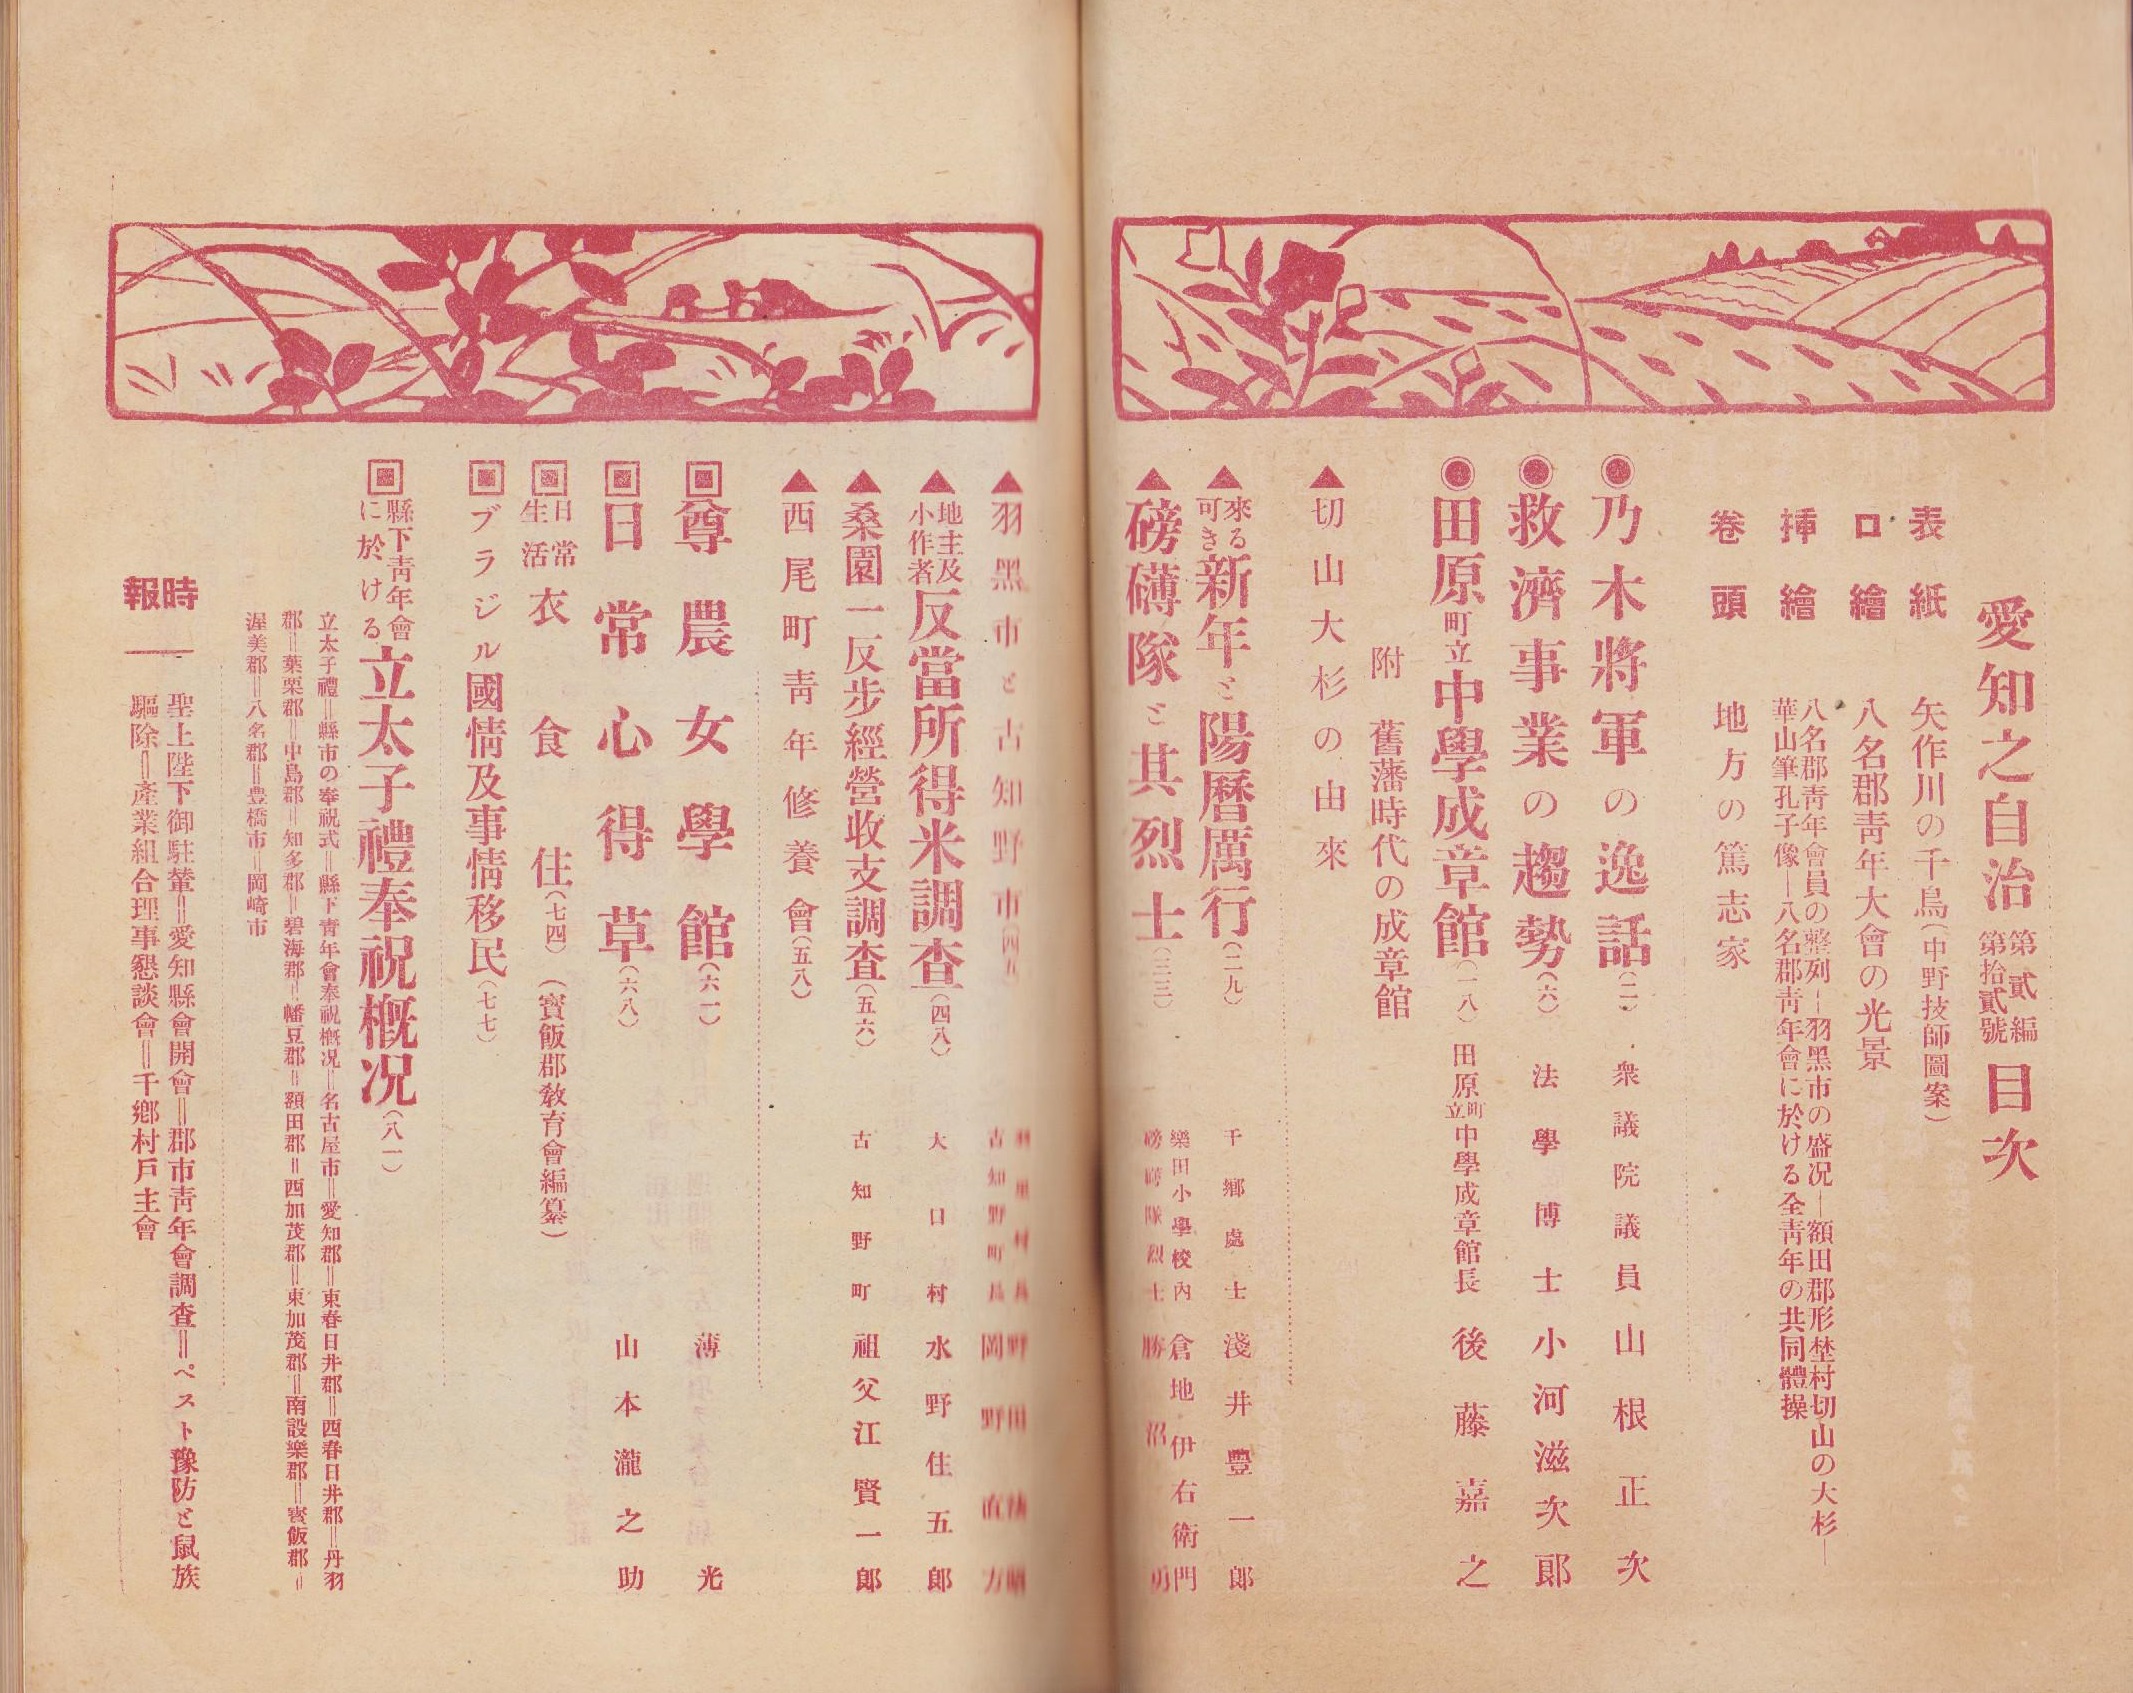 愛知之自治 第貳編 第拾貳號 目次
表紙 矢作川の千鳥(中野技師圖案)
口繪 八名郡靑年大會の光景
挿繪 八名郡靑年會員の整列―羽黑市の盛况―額田郡形埜村切山の大杉―
華山筆孔子像―八名郡靑年會に於ける全靑年の共同體操
卷頭 地方の篤志家
◉乃木將軍の逸話(二) 衆議院議員 山根正次
◉救濟事業の趨勢(六) 法學博士 小河滋次郞
◉田原町立中學成章館(一八) 田原町立中學成章館長 後藤嘉之
附 舊藩時代の成章館
▲切山大杉の由來
▲來る可き新年と陽曆厲行(二九) 千鄕處士 淺井豐一郞
▲磅礴隊と其烈士(三三) 樂田小學校內 倉地伊右衛門
磅礴隊烈士 勝沼勇
▲羽黑市と古知野市 野田
古知野町長 岡野直方
▲地主及小作者反當所得米調査(四八) 大口村 水野住五郞
▲桑園一反步經營收支調査(五六) 古知野町 祖父江賢一郞
▲西尾町靑年修養會(五八)
▣尊農女學館(六一) 薄光
▣日常心得草(六八) 山本瀧之助
▣日常生活衣食住(七四) (寳飯郡敎育會編纂)
▣ブラジル國情及事情移民(七七)
▣縣下靑年會に於ける立太子禮奉祝槪况(八一)
立太子禮=縣市の奉祝式=縣下靑年會奉祝槪况=名古屋市=愛知郡=東春日井郡=西春日井郡=丹羽
郡=葉栗郡=中島郡=知多郡=碧海郡=幡豆郡=額田郡=西加茂郡=東加茂郡=南設樂郡=寳飯郡=
渥美郡=八名郡=豊橋市=岡崎市
時報― 聖上陛下御駐輦=愛知縣會開會=郡市靑年會調査=ペスト豫防と鼠族
驅除=產業組合理事懇談會=千鄕村戶主會